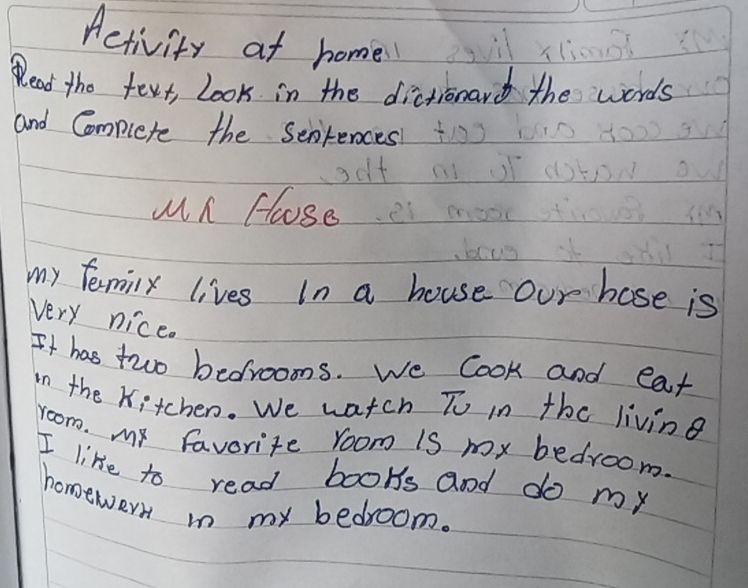 Activity at home
Read the text, Look in the dictionary the words
and Complete the Sentences
My House
my family lives in a house Our hose is
Very nice.
It has two bedrooms. We Cook and eat
in the Kitchen. We watch Tv in the living
room. my favorite room is my bedroom.
I like to read books and do my
homework in my bedroom.